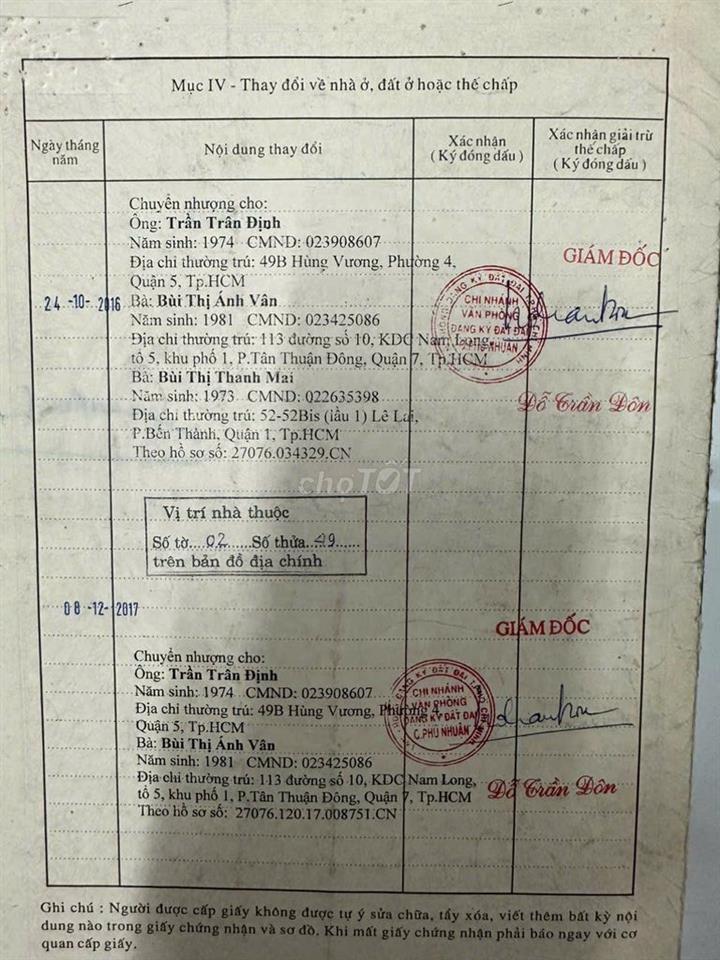 Mục IV - Thay đổi về nhà ở, đất ở hoặc thế chấp
Ngày tháng năm
Nội dung thay đổi
Xác nhận
( Ký đóng dấu )
Xác nhận giải trừ
thế chấp
( Ký đóng dấu )
Chuyển nhượng cho:
Ông: Trần Trân Định
Năm sinh: 1974 CMND: 023908607
Địa chỉ thường trú: 49B Hùng Vương, Phường 4,
Quận 5, Tp.HCM
24 -10- 2016
Bà: Bùi Thị Ánh Vân
Năm sinh: 1981 CMND: 023425086
Địa chỉ thường trú: 113 đường số 10, KDC Nam Long,
tổ 5, khu phố 1, P.Tân Thuận Đông, Quận 7, Tp.HCM
Bà: Bùi Thị Thanh Mai
Năm sinh: 1973 CMND: 022635398
Địa chỉ thường trú: 52-52Bis (lầu 1) Lê Lai,
P.Bến Thành, Quận 1, Tp.HCM
Theo hồ sơ số: 27076.034329.CN
GIÁM ĐỐC
CHI NHÁNH
VĂN PHÒNG
ĐĂNG KÝ ĐẤT ĐAI
Q.PHÚ NHUẬN
Đỗ Trần Đôn
chợTỐT
Vị trí nhà thuộc
Số tờ...02......Số thửa..49......
trên bản đồ địa chính
08 -12- 2017
GIÁM ĐỐC
Chuyển nhượng cho:
Ông: Trần Trân Định
Năm sinh: 1974 CMND: 023908607
Địa chỉ thường trú: 49B Hùng Vương, Phường 4,
Quận 5, Tp.HCM
Bà: Bùi Thị Ánh Vân
Năm sinh: 1981 CMND: 023425086
Địa chỉ thường trú: 113 đường số 10, KDC Nam Long,
tổ 5, khu phố 1, P.Tân Thuận Đông, Quận 7, Tp.HCM
Theo hồ sơ số: 27076.120.17.008751.CN
CHI NHÁNH
VĂN PHÒNG
ĐĂNG KÝ ĐẤT ĐAI
Q.PHÚ NHUẬN
Đỗ Trần Đôn
Ghi chú : Người được cấp giấy không được tự ý sửa chữa, tẩy xóa, viết thêm bất kỳ nội
dung nào trong giấy chứng nhận và sơ đồ. Khi mất giấy chứng nhận phải báo ngay với cơ
quan cấp giấy.